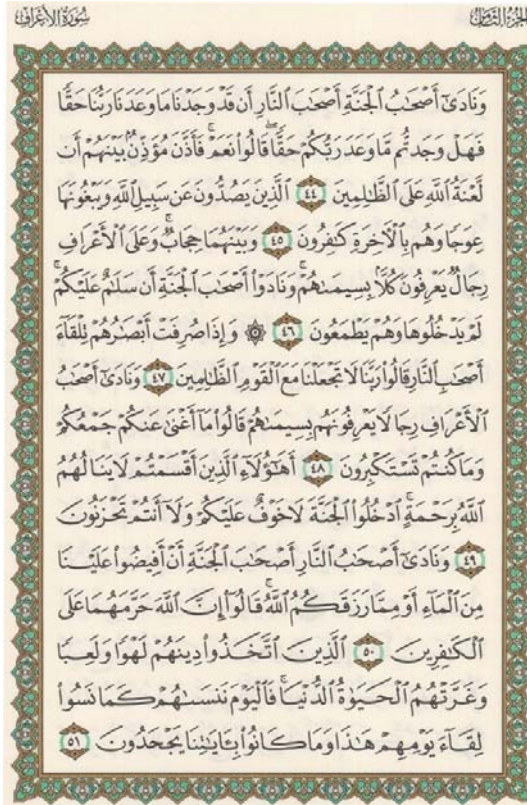 الجزء الثامن
سورة الأعراف
وَنَادَىٰٓ أَصْحَٰبُ ٱلْجَنَّةِ أَصْحَٰبَ ٱلنَّارِ أَن قَدْ وَجَدْنَا مَا وَعَدَنَا رَبُّنَا حَقًّا
فَهَلْ وَجَدتُّم مَّا وَعَدَ رَبُّكُمْ حَقًّا ۖ قَالُوا۟ نَعَمْ ۚ فَأَذَّنَ مُؤَذِّنٌۢ بَيْنَهُمْ أَن
لَّعْنَةُ ٱللَّهِ عَلَى ٱلظَّٰلِمِينَ ٤٤ ٱلَّذِينَ يَصُدُّونَ عَن سَبِيلِ ٱللَّهِ وَيَبْغُونَهَا
عِوَجًا وَهُم بِٱلْأَخِرَةِ كَٰفِرُونَ ٤٥ وَبَيْنَهُمَا حِجَابٌ ۚ وَعَلَى ٱلْأَعْرَافِ
رِجَالٌ يَعْرِفُونَ كُلًّۢا بِسِيمَىٰهُمْ ۚ وَنَادَوْا۟ أَصْحَٰبَ ٱلْجَنَّةِ أَن سَلَٰمٌ عَلَيْكُمْ ۚ
لَمْ يَدْخُلُوهَا وَهُمْ يَطْمَعُونَ ٤٦ ۞ وَإِذَا صُرِفَتْ أَبْصَٰرُهُمْ تِلْقَآءَ
أَصْحَٰبِ ٱلنَّارِ قَالُوا۟ رَبَّنَا لَا تَجْعَلْنَا مَعَ ٱلْقَوْمِ ٱلظَّٰلِمِينَ ٤٧ وَنَادَىٰٓ أَصْحَٰبُ
ٱلْأَعْرَافِ رِجَالًا يَعْرِفُونَهُم بِسِيمَىٰهُمْ قَالُوا۟ مَآ أَغْنَىٰ عَنكُمْ جَمْعُكُمْ
وَمَا كُنتُمْ تَسْتَكْبِرُونَ ٤٨ أَهَٰٓؤُلَآءِ ٱلَّذِينَ أَقْسَمْتُمْ لَا يَنَالُهُمُ
ٱللَّهُ بِرَحْمَةٍ ۚ ٱدْخُلُوا۟ ٱلْجَنَّةَ لَا خَوْفٌ عَلَيْكُمْ وَلَآ أَنتُمْ تَحْزَنُونَ
٤٩ وَنَادَىٰٓ أَصْحَٰبُ ٱلنَّارِ أَصْحَٰبَ ٱلْجَنَّةِ أَنْ أَفِيضُوا۟ عَلَيْنَا
مِنَ ٱلْمَآءِ أَوْ مِمَّا رَزَقَكُمُ ٱللَّهُ ۚ قَالُوٓا۟ إِنَّ ٱللَّهَ حَرَّمَهُمَا عَلَى
ٱلْكَٰفِرِينَ ٥٠ ٱلَّذِينَ ٱتَّخَذُوا۟ دِينَهُمْ لَهْوًا وَلَعِبًا
وَغَرَّتْهُمُ ٱلْحَيَوٰةُ ٱلدُّنْيَا ۚ فَٱلْيَوْمَ نَنسَىٰهُمْ كَمَا نَسُوا۟
لِقَآءَ يَوْمِهِمْ هَٰذَا وَمَا كَانُوا۟ بِـَٔايَٰتِنَا يَجْحَدُونَ ٥١